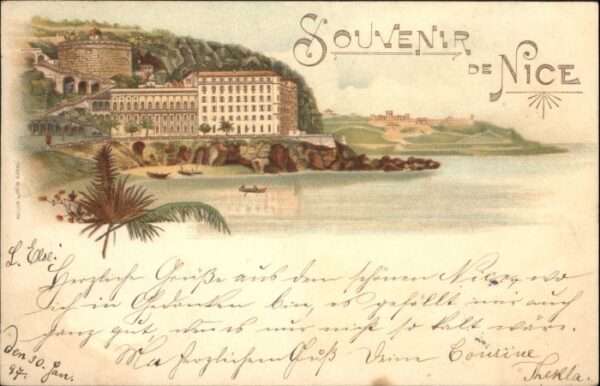 SOUVENIR
DE NICE
L. Else!
Herzliche Grüße aus dem schönen Nizza, wo
ich in Gedanken bin, es gefällt mir auch
ganz gut, wenn es nur nicht so kalt wäre.
Mit herzlichem Gruß Deine Cousine
Thekla.
Den 30. Jan.
97.